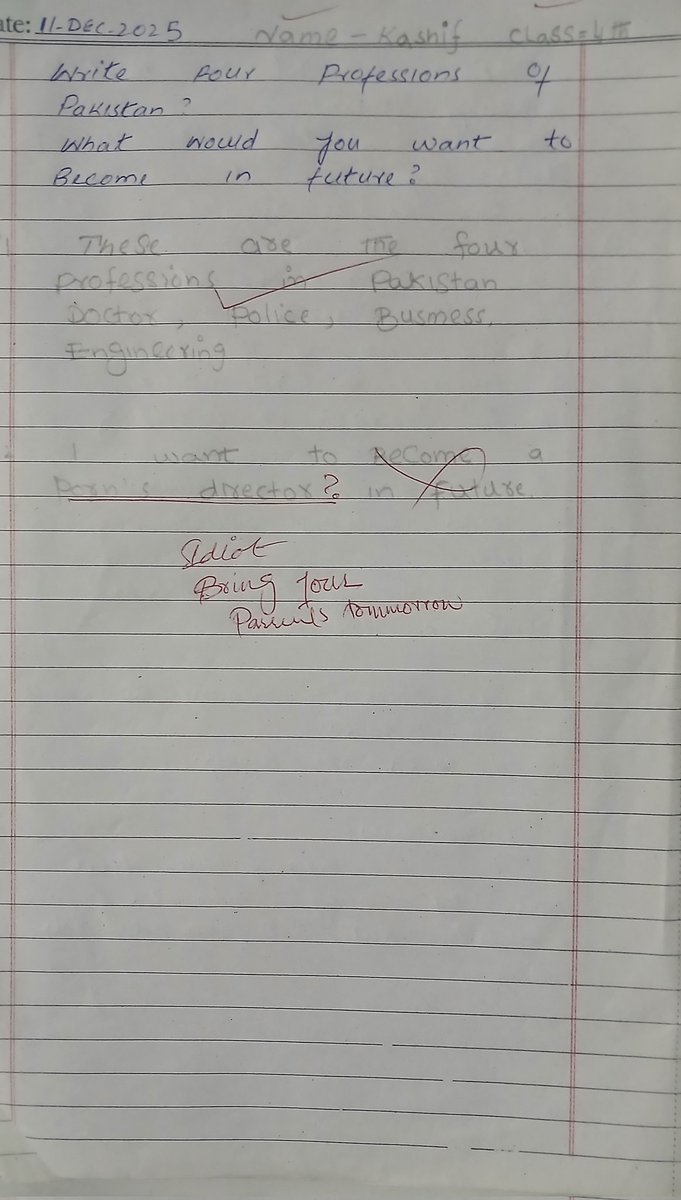 ate: 11-DEC-2025 Name - Kashif Class=4th
Write four Professions of
Pakistan?
What would you want to
Become in future?
These are the four
professions in Pakistan
Doctor, Police, Busmess,
Engineering
I want to Become a
Porn's director? in future.
Idiot
Bring your
Parents tommorrow